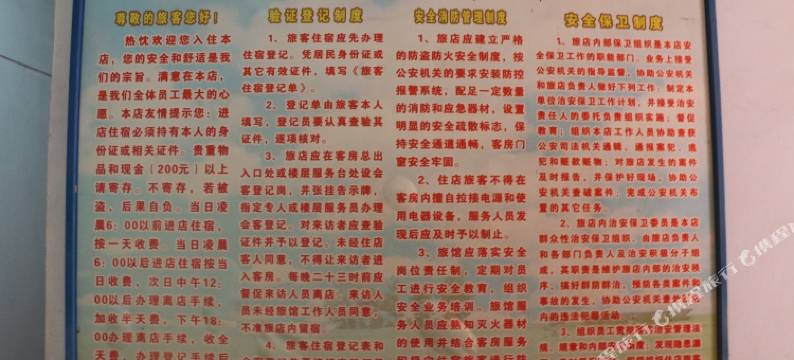 尊敬的旅客您好！
热忱欢迎您入住本
店，您的安全和舒适是我
们的宗旨。满意在本店，
是我们全体员工最大的心
愿。本店友情提示您：进
店住宿必须持有本人的身
份证或相关证件。贵重物
品和现金（200元）以上
请寄存。不寄存，若被
盗，后果自负。当日凌
晨6：00以前进店住宿，
按一天收费。当日凌晨
6：00以后进店住宿按当
日收费，次日中午12：
00以后办理离店手续，
加收半天费，下午18：
00办理离店手续，收全
天费。办理登记手续后
验证登记制度
1、旅客住宿应先办理
住宿登记。凭居民身份证或
其它有效证件，填写《旅客
住宿登记单》。
2、登记单由旅客本人
填写，登记员要认真查验其
证件，逐项核对。
3、旅店应在客房总出
入口处或楼层服务台处设会
客登记岗，并张挂告示牌，
指定专人或楼层服务员办理
会客登记。对来访者应查验
证件并予以登记。未经住店
客人同意，不得让来访者进
入客房。每晚二十三时前应
督促来访人员离店。来访人
员未经旅馆工作人员同意，
不准旅店内留宿。
4、旅客住宿登记表和
安全消防管理制度
1、旅店应建立严格
的防盗防火安全制度，按
公安机关的要求安装防控
报警系统，配足一定数量
的消防和应急器材，设置
明显的安全疏散标志，保
持安全通道通畅，客房门
窗安全牢固。
2、住店旅客不得在
客房内擅自拉接电源和使
用电器设备，服务人员发
现后应及时予以制止。
3、旅馆应落实安全
岗位责任制，定期对员
工进行安全教育，组织
安全业务培训。旅馆服
务人员应熟知灭火器材
的使用并结合客房服务
安全保卫制度
1、旅店内部保卫组织是本店安
全保卫工作的职能部门，业务上接受
公安机关的指导监督，协助公安机关
和旅店负责人做好下列工作，制定本
单位治安保卫工作计划，并接受治安
责任人的委托负责组织实施；督促
教育；组织本店工作人员协助查获
公安司法机关通辑，通报案犯、逃
犯和赃款赃物；对旅店发生的案件
及时报告，并保护好现场，协助公
安机关查破案件；完成公安机关布
置的其它任务。
2、旅店内治安保卫委员是本店
群众性治安保卫组织，由旅店负责人
和各部门负责人及治安积极分子组
成，其职责是维护旅店内部的治安秩
序，搞好群防群治，预防各类案件和
事故的发生，协助公安机关查处
内的违法犯罪活动
3、组织员工贯
携程旅行